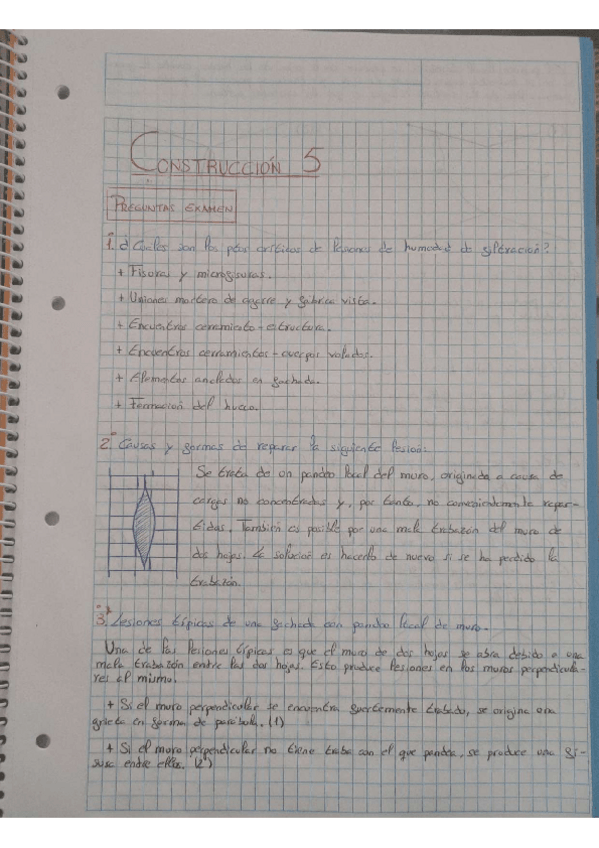 CONSTRUCCIÓN 5
PREGUNTAS EXAMEN
1. ¿Cuáles son los ptos críticos de lesiones de humedad de filtración?
+ Fisuras y microfisuras.
+ Uniones mortero de agarre y fábrica vista.
+ Encuentros cerramiento-estructura.
+ Encuentros cerramientos-cuerpos volados.
+ Elementos anclados en fachada.
+ Formación del hueco.
2. Causas y formas de reparar la siguiente lesión:
Se trata de un pandeo local del muro, originado a causa de
cargas no concentradas y, por tanto, no convenientemente repar-
tidas. También es posible por una mala trabazón del muro de
dos hojas. La solución es hacerlo de nuevo si se ha perdido la
trabazón.
3. Lesiones típicas de una fachada con pandeo local de muro.
Una de las lesiones típicas es que el muro de dos hojas se abra debido a una
mala trabazón entre las dos hojas. Esto produce lesiones en los muros perpendicula-
res al mismo.
+ Si el muro perpendicular se encuentra fuertemente trabado, se origina una
grieta en forma de parábola. (1)
+ Si el muro perpendicular no tiene traba con el que pandea, se produce una fi-
sura entre ellos. (2)